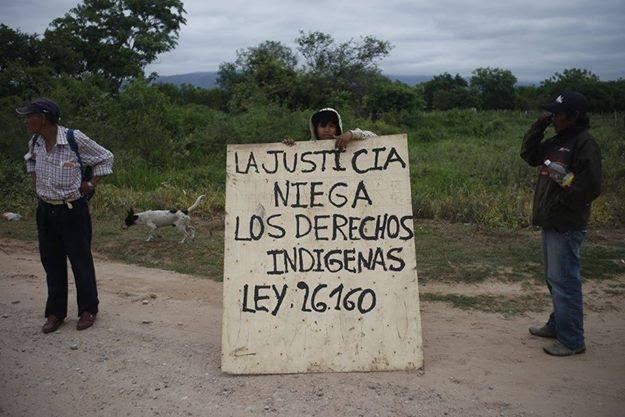 LA JUSTICIA
NIEGA
LOS DERECHOS
INDIGENAS
LEY 26.160